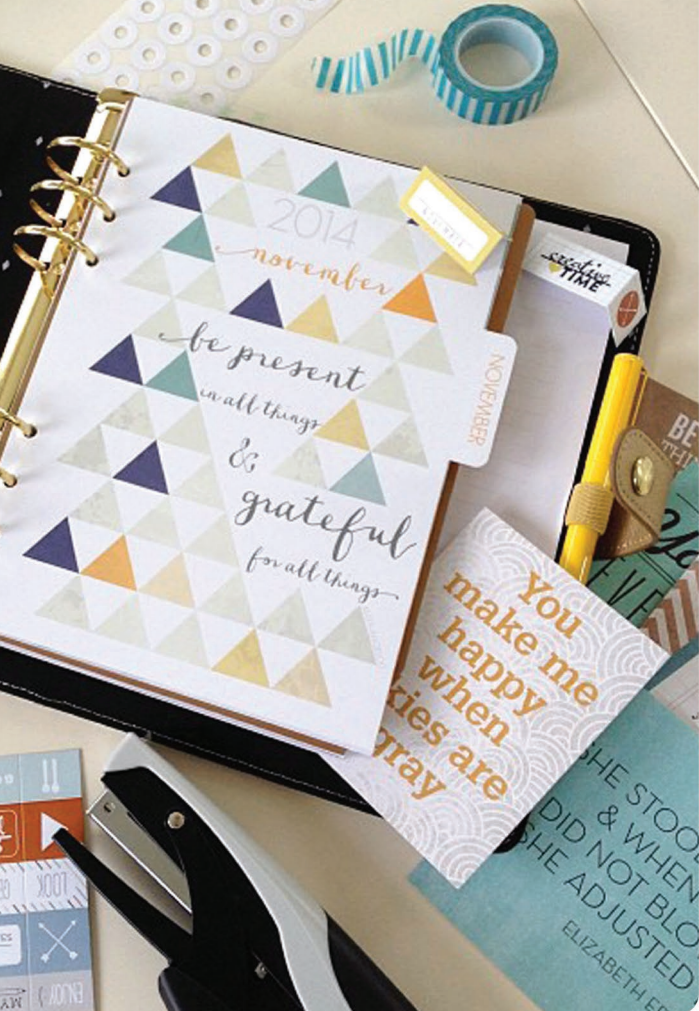 2014
november
be present
in all things
&
grateful
for all things
NOVEMBER
creative
TIME
BE
THI
EVE
You
make me
happy
when
kies are
gray
SHE STOO
& WHEN
DID NOT BLO
SHE ADJUSTED
ELIZABETH E
LOOK
MY
ENJOY :)